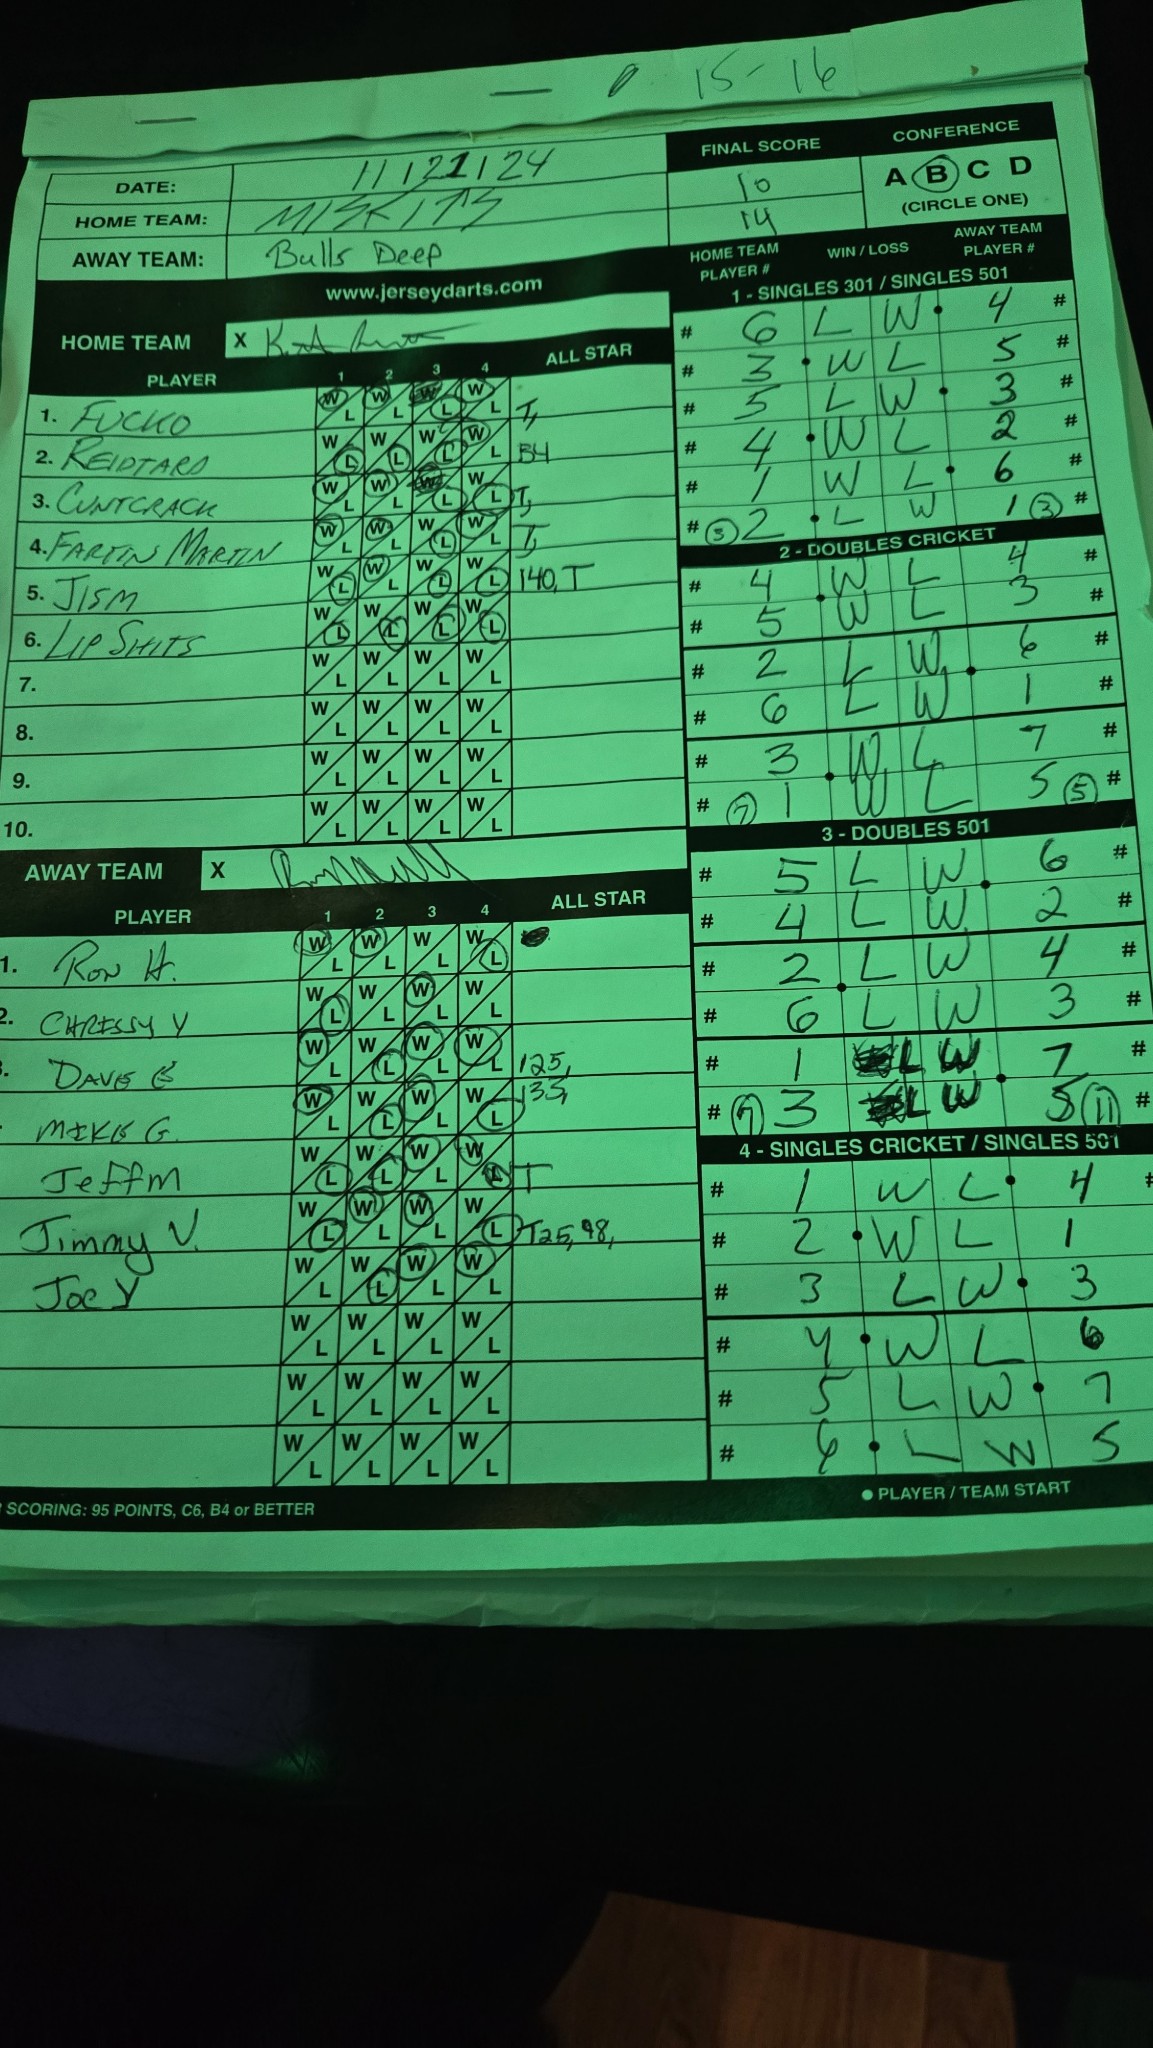 15-16
DATE: 11/21/24
HOME TEAM: MISFITS
AWAY TEAM: Bulls Deep
FINAL SCORE
10
14
CONFERENCE
A B C D
(CIRCLE ONE)
www.jerseydarts.com
HOME TEAM X
PLAYER 1 2 3 4 ALL STAR
1. FUCKO W L W L W L W L T,
2. REIDTARD W L W L W L W L B4
3. CUNTCRACK W L W L W L W L T,
4. FARTIN MARTIN W L W L W L W L T,
5. JISM W L W L W L W L 140, T
6. LIP SHITS W L W L W L W L
7. W L W L W L W L
8. W L W L W L W L
9. W L W L W L W L
10. W L W L W L W L
AWAY TEAM X
PLAYER 1 2 3 4 ALL STAR
1. RON H. W L W L W L W L
2. CHRISSY Y W L W L W L W L
3. DAVE E W L W L W L W L 125,
MIKE G. W L W L W L W L 133,
Jeff M W L W L W L W L T
Jimmy V. W L W L W L W L T25, 98,
Joe Y W L W L W L W L
W L W L W L W L
W L W L W L W L
W L W L W L W L
SCORING: 95 POINTS, C6, B4 or BETTER
HOME TEAM PLAYER # WIN / LOSS AWAY TEAM PLAYER #
1 - SINGLES 301 / SINGLES 501
# 6 L W 4 #
# 3 W L 5 #
# 5 L W 3 #
# 4 W L 2 #
# 1 W L 6 #
# 3 2 L W 1 3 #
2 - DOUBLES CRICKET
# 4 W L 4 #
# 5 W L 3 #
# 2 L W 6 #
# 6 L W 1 #
# 3 W L 7 #
# 7 1 W L 5 5 #
3 - DOUBLES 501
# 5 L W 6 #
# 4 L W 2 #
# 2 L W 4 #
# 6 L W 3 #
# 1 L W 7 #
# 7 3 L W 5 11 #
4 - SINGLES CRICKET / SINGLES 501
# 1 W L 4 #
# 2 W L 1
# 3 L W 3
# 4 W L 6
# 5 L W 7
# 6 L W 5
PLAYER / TEAM START